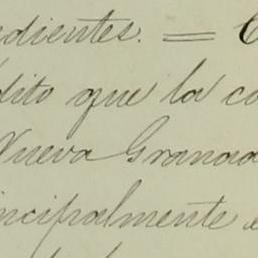 edientes. = C
dito que la co
Nueva Granad
incipalmente e